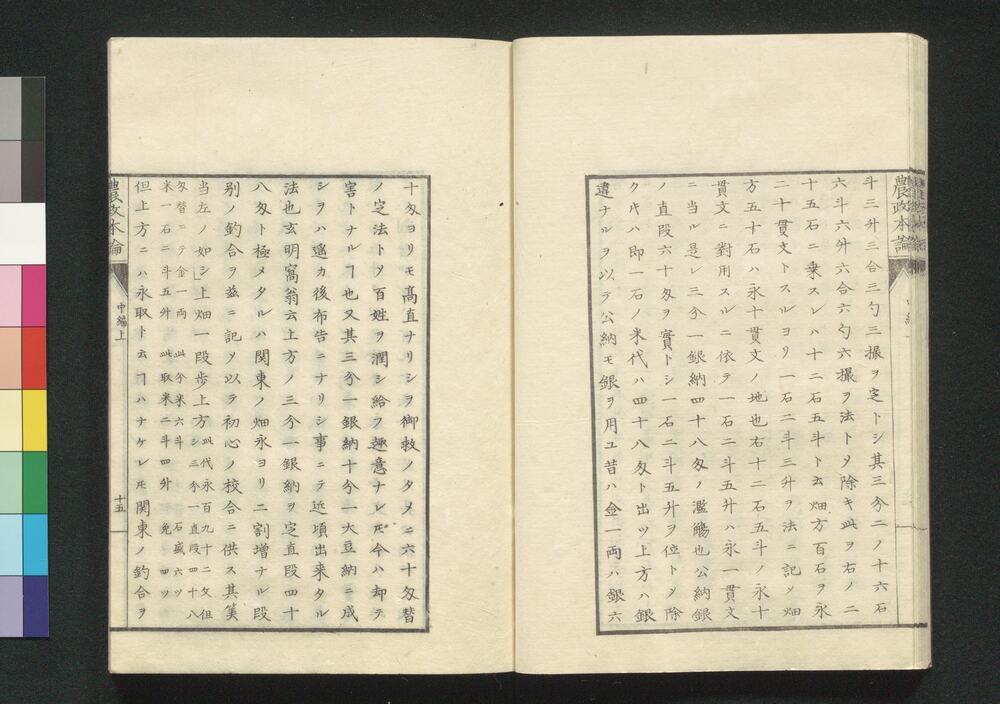 農政本論
斗三升三合三勺三撮ヲ定トシ其三分二ノ十六石
六斗六升六合六勺六撮ヲ法トヲ除キ此ヲ右ノ二
十五石ニ乗スレハ十二石五斗ト云畑方百石ヲ永
二十貫文トスルヨリ一石二斗三升ヲ法ニ記ソ畑
方五十石ハ永十貫文ノ地也右十二石五斗ノ永十
貫文ニ對用スルニ依テ一石二斗五升ハ永一貫文
ニ当ル是レ三分一銀納四十八匁ノ濫觴也公納銀
ノ直段六十匁ヲ實トシ一石二斗五升ヲ位トソ除
クキハ即一石ノ米代ハ四十八匁ト出ツ上方ハ銀
違ナルヲ以テ公納モ銀ヲ用ユ昔ハ金一両ハ銀六
十匁ヨリモ髙直ナリシヲ御敕ノタメニ六十匁替
ノ定法トソ百姓ヲ潤シ給フ趣意ナレ𪜈今ハ却テ
害トナルヿ也又其三分一銀納十分一大豆納ニ成
シヲハ遙カ後布告ニナリシ事ニテ近頃出来タル
法也玄明窩翁云上方ノ三分一銀納ヲ定直段四十
八匁ト極メタルハ関東ノ畑永ヨリ二割増ナル段
別ノ釣合ヲ茲ニ記ソ以テ初心ノ校合ニ供ス其筭
当左ノ如シ」上畑一段歩上方此代永百九十二文但シ三分一直段四十八
匁替ニテ金一両此分米六斗石盛六ツ
米一石二斗五升此取米二斗四升免四ツ
但上方ニハ永取ト云ヿハナケレ𪜈関東ノ釣合ヲ
農政本論
中編上
十五